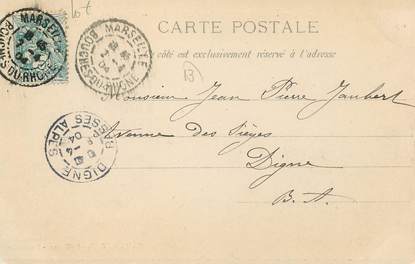 CARTE POSTALE
Ce côté est exclusivement réservé à l'adresse
MARSEILLE
BOUCHES-DU-RHONE
MARSEILLE
BOUCHES-DU-RHONE
13
Monsieur Jean Pierre Jaubert
Avenue des Sièges
Digne
B. A.
DIGNE
BSES ALPES
04